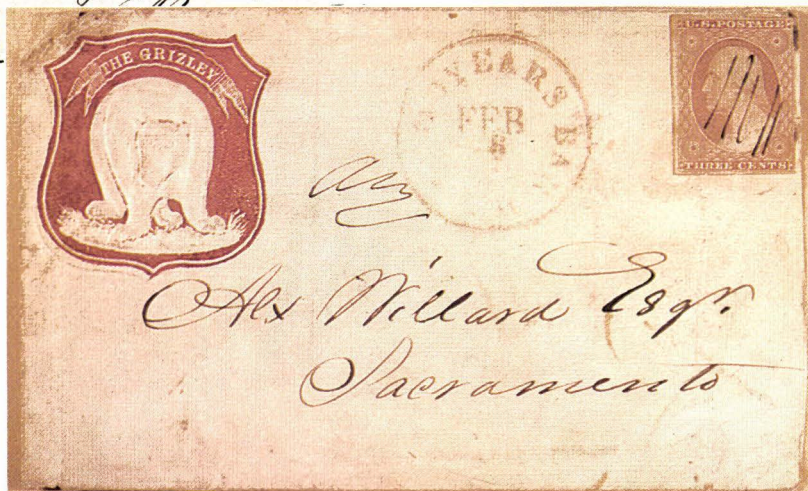 THE GRIZLEY
YEARS BA
FEB
8
U.S. POSTAGE
THREE CENTS
Alex Willard Esqr.
Sacramento